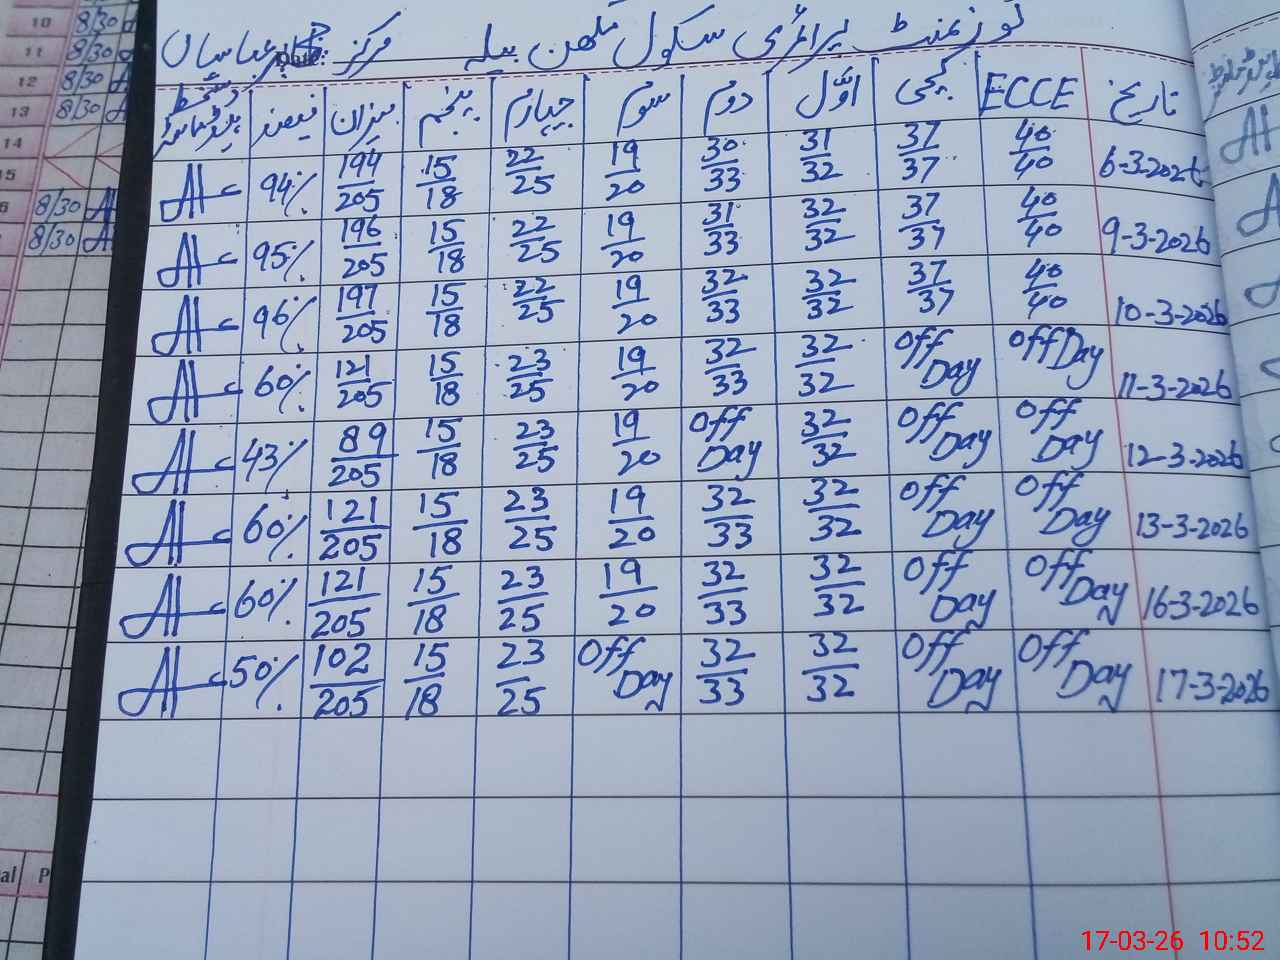 گورنمنٹ پرائمری سکول مکھن بیلہ مرکز عباساں
تاریخ ECCE کچی اوّل دوم سوم چہارم پنجم میزان فیصد دستخط ہیڈ ماسٹر
6-3-2026 40/40 37/37 31/32 30/33 19/20 22/25 15/18 194/205 94%
9-3-2026 40/40 37/37 32/32 31/33 19/20 22/25 15/18 196/205 95%
10-3-2026 40/40 37/37 32/32 32/33 19/20 22/25 15/18 197/205 96%
11-3-2026 Off Day Off Day 32/32 32/33 19/20 23/25 15/18 121/205 60%
12-3-2026 Off Day Off Day 32/32 Off Day 19/20 23/25 15/18 89/205 43%
13-3-2026 Off Day Off Day 32/32 32/33 19/20 23/25 15/18 121/205 60%
16-3-2026 Off Day Off Day 32/32 32/33 19/20 23/25 15/18 121/205 60%
17-3-2026 Off Day Off Day 32/32 32/33 Off Day 23/25 15/18 102/205 50%
10 8/30
11 8/30
12 8/30
13 8/30
14
15
8/30
8/30
17-03-26 10:52